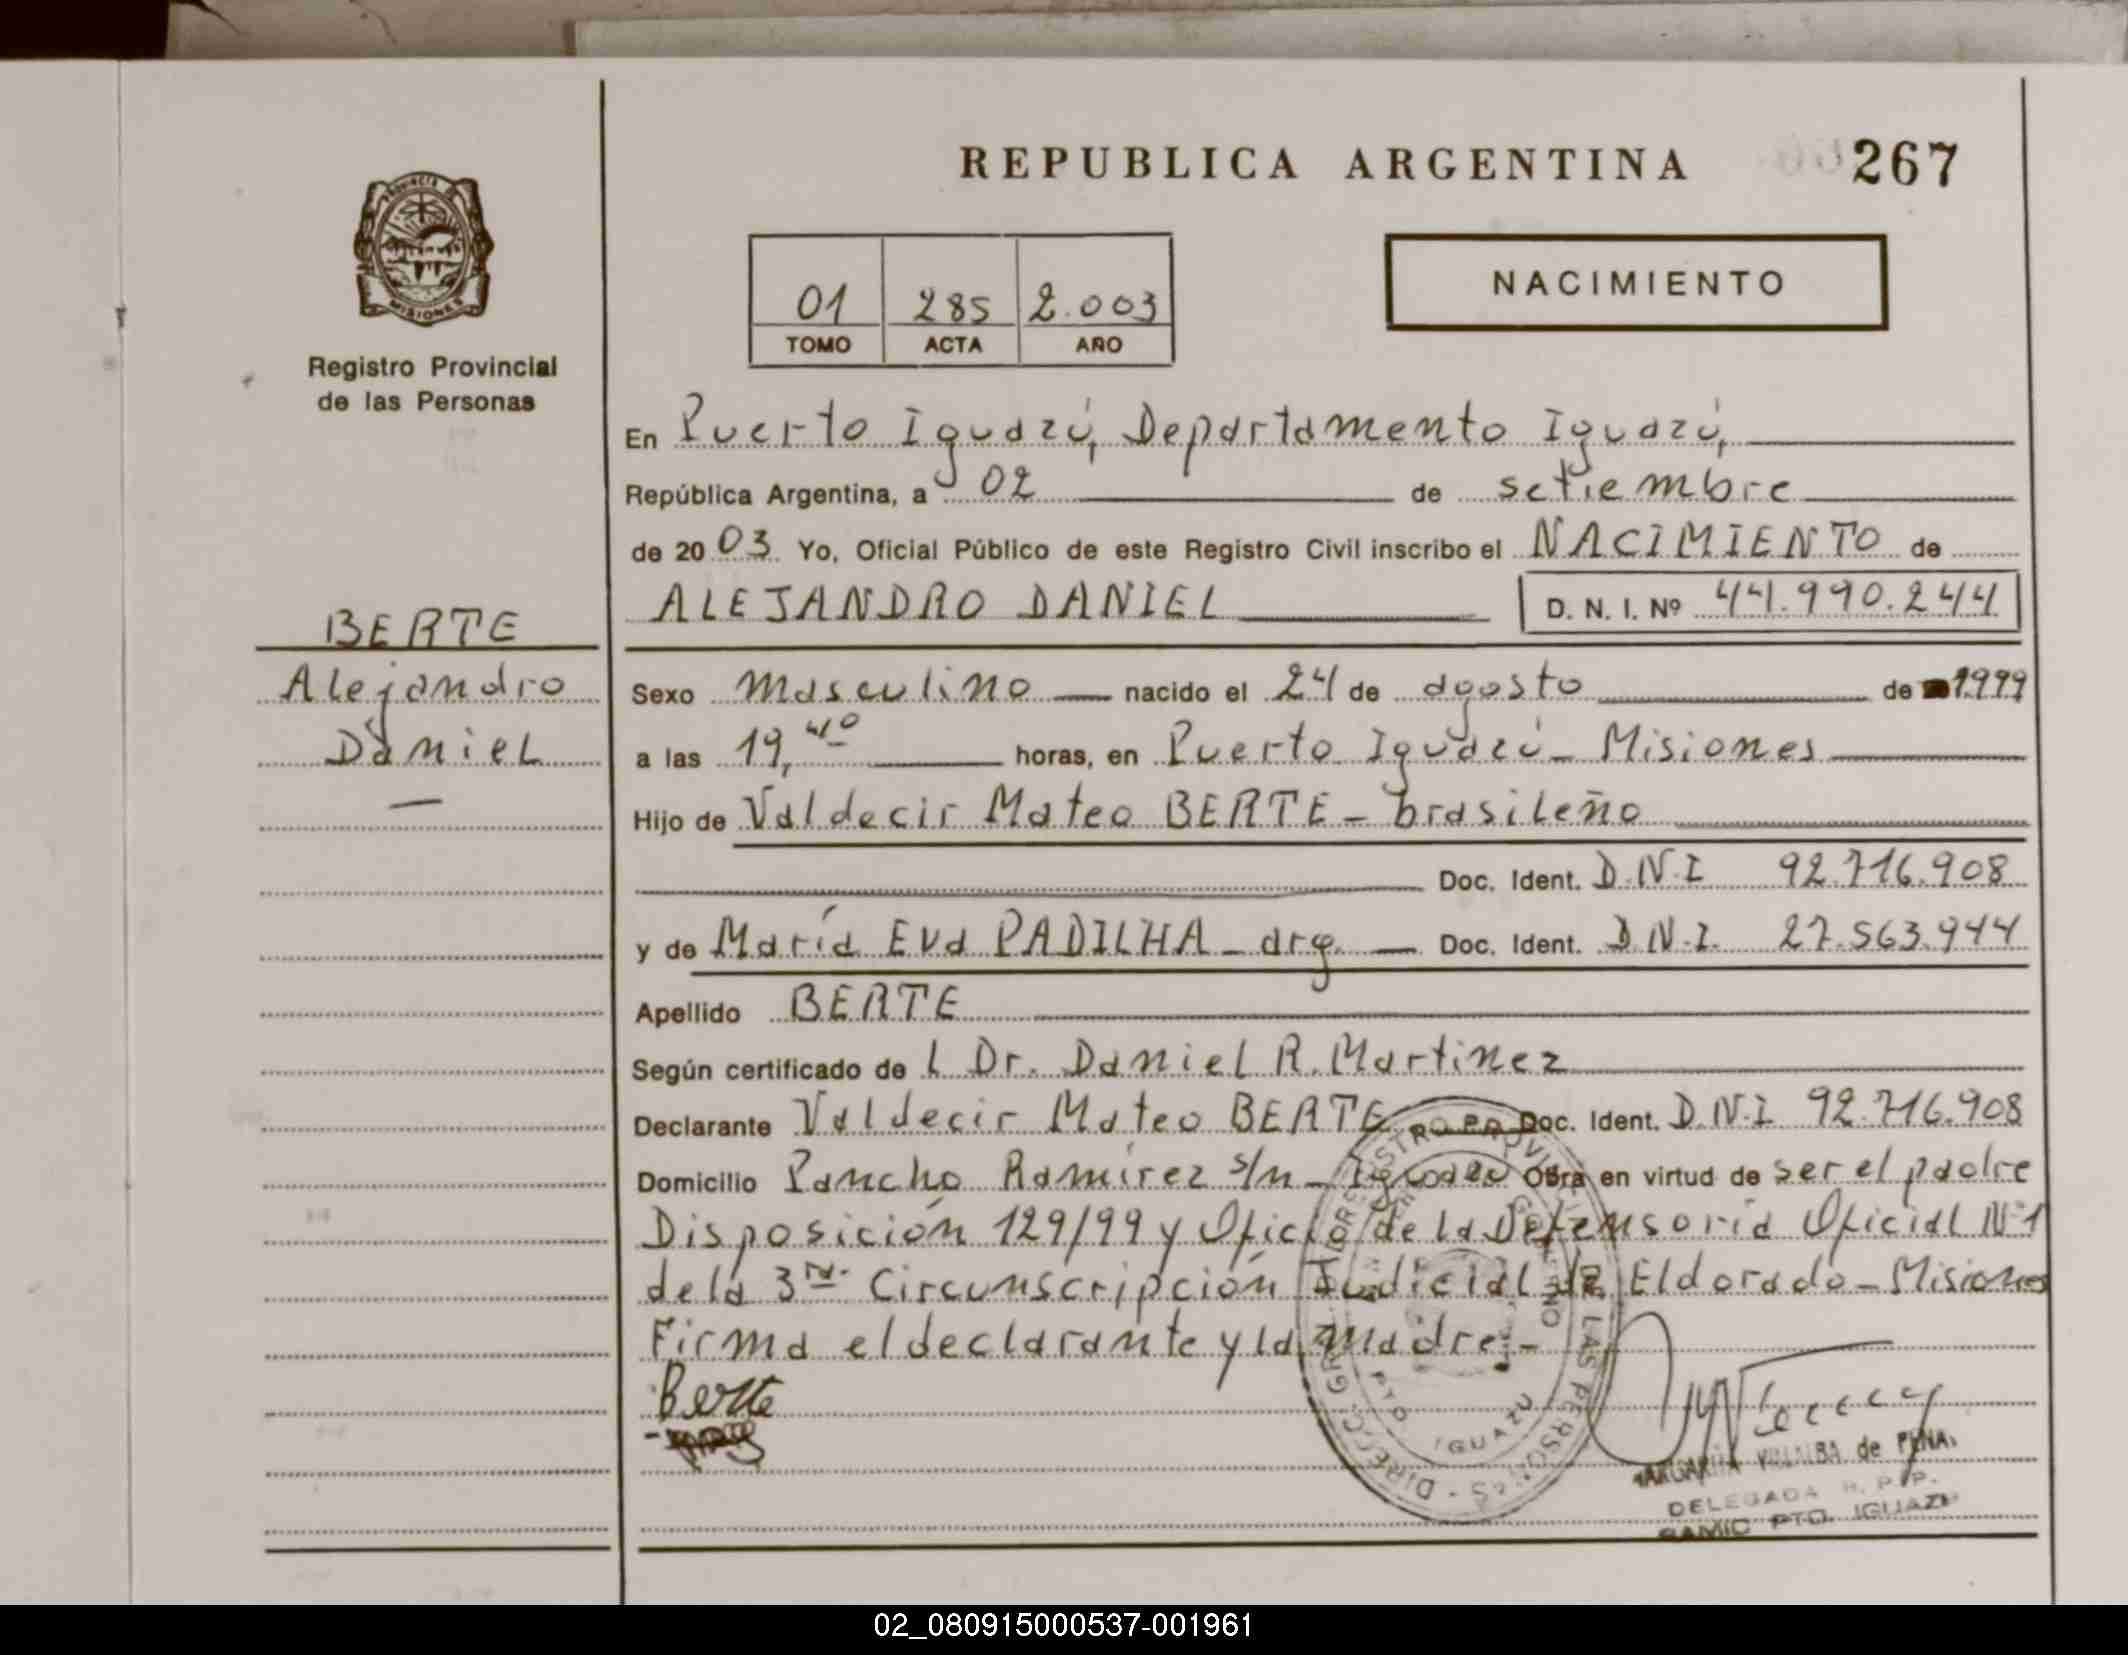 REPUBLICA ARGENTINA 267
PROVINCIA DE
MISIONES
Registro Provincial
de las Personas
NACIMIENTO
01 285 2.003
TOMO ACTA AÑO
BERTE
Alejandro
Daniel
En Puerto Iguazú, Departamento Iguazú,
República Argentina, a 02 de setiembre
de 2003 Yo, Oficial Público de este Registro Civil inscribo el NACIMIENTO de
ALEJANDRO DANIEL D. N. I. Nº 44.990.244
Sexo masculino nacido el 24 de agosto de 1999
a las 19,40 horas, en Puerto Iguazú - Misiones
Hijo de Valdecir Mateo BERTE - brasileño
Doc. Ident. D.N.I 92.716.908
y de María Eva PADILHA - arg. Doc. Ident. D.N.I. 27.563.944
Apellido BERTE
Según certificado de l Dr. Daniel R. Martinez
Declarante Valdecir Mateo BERTE Doc. Ident. D.N.I 92.716.908
Domicilio Pancho Ramírez s/n - Iguazú Obra en virtud de ser el padre
Disposición 129/99 y Oficio de la Defensoría Oficial Nº1
de la 3ra. Circunscripción Judicial de Eldorado - Misiones
Firma el declarante y la madre.-
Berte
PTO IGUAZU
MARGARITA VILLALBA de PEÑA
DELEGADA R. P. P.
SAMIC PTO. IGUAZU
02_080915000537-001961